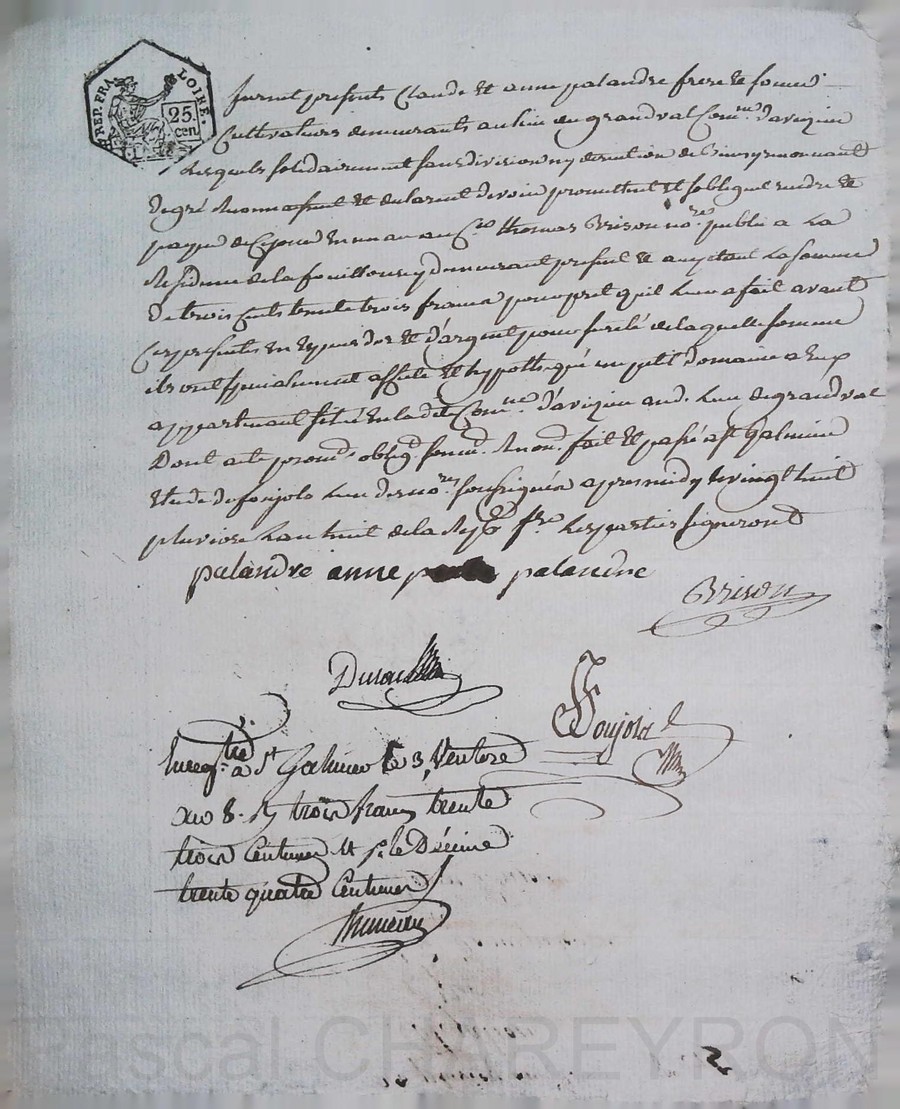 REP. FRA. LOIRE.
25. cen
furent presents Claude et anne palandre frere et soeur
Cultivateurs demeurants au lieu de grandval Com.ne d'aveizieu
Lesquels solidairement sans division ny
de gré reconnaissent et declarent devoir promettent et sobligent rendre et
payer de ce jour en un an au C.en thomas Brison no.re public a La
Residence de la fouillouse y demeurant present et acceptant La somme
De trois cents trente trois francs pour pret qu'il leur a fait avant
Ces presentes en especes d'or et d'argent pour sureté de laquelle somme
ils ont specialement affecté et hypothequé un petit domaine a Eux
appartenant situé en ladite Com.ne d'aveizieu aud. Lieu de grandval
Dont acte prom. oblig. soumis. Renon. fait et passé a St Galmier
Etude de foujols L'un des no.res soussignés apres midy le vingt huit
pluviose L'an huit de la Rep. fse Les parties signeront
palandre anne palandre
Brison
foujols
Enreg.tré a St Galmier Le 3 Ventose
an 8. R trois francs trente
trois Centimes et p.r le Décime
trente quatre Centimes
2
Pascal CHAREYRON